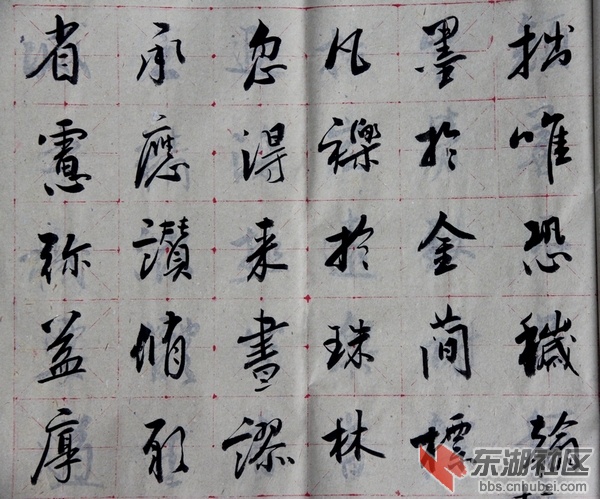 拙唯恐穢翰
墨於金簡標
瓦礫於珠林
忽得来書謬
承褒讚循躬
省慮弥益厚
东湖社区
bbs.cnhubei.com